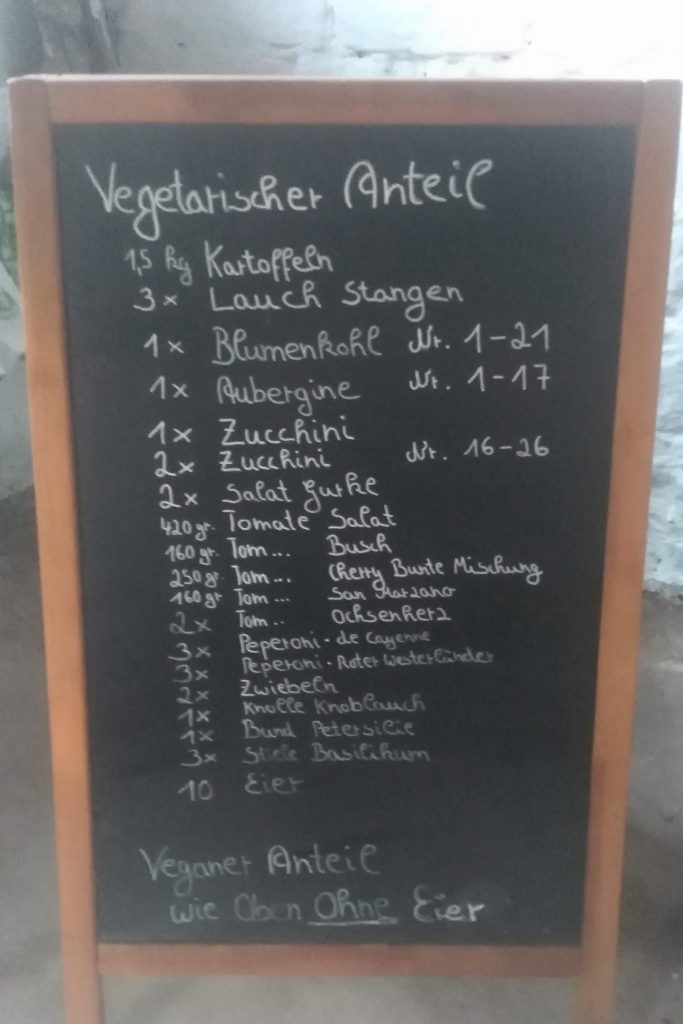 Vegetarischer Anteil
1,5 kg Kartoffeln
3x Lauch Stangen
1x Blumenkohl Nr. 1-21
1x Aubergine Nr. 1-17
1x Zucchini
2x Zucchini Nr. 16-26
2x Salat Gurke
420 gr. Tomate Salat
160 gr. Tom... Busch
250 gr. Tom... Cherry Bunte Mischung
160 gr Tom... San Marzano
2x Tom.. Ochsenherz
3x Peperoni - de Cayenne
3x Peperoni - Roter Westerländer
2x Zwiebeln
1x Knolle Knoblauch
1x Bund Petersilie
3x Stiele Basilikum
10 Eier
Veganer Anteil
wie Oben Ohne Eier